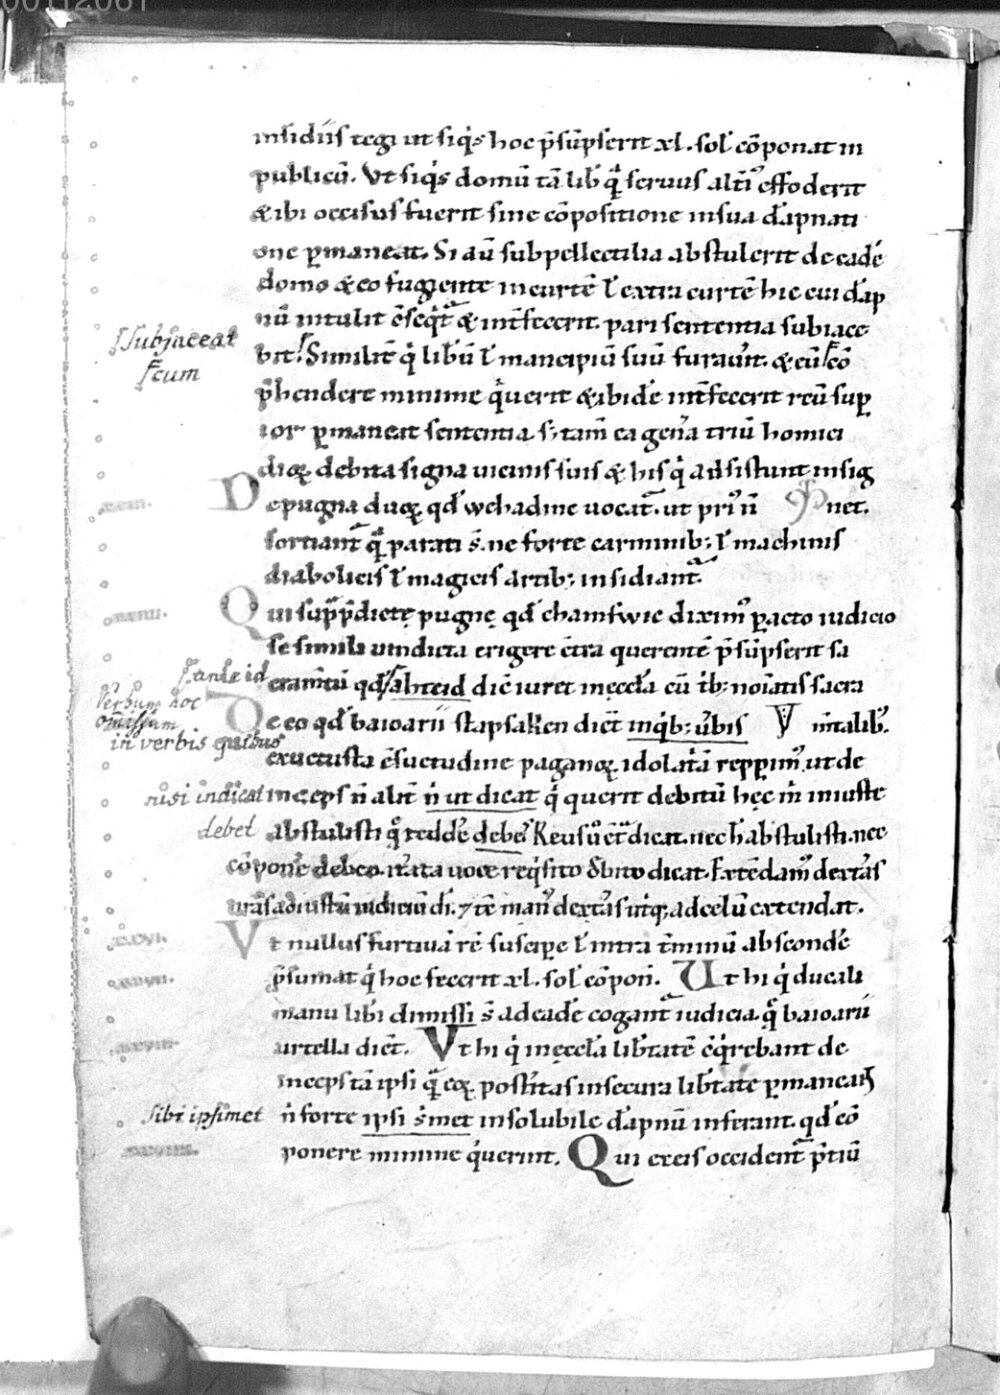 00112061
insidiis tegi ut siq̇s hoc p̄sūpserit xl. sol̄ cōponat in
publicū. Vt siq̇s domū tā lib̄ q̄ seruus alt̄i᾽ effoderit
& ibi occisus fuerit sine cōpositione insua dāpnati
one p̱maneat. Si aū subpellectilia abstulerit de eadē
domo & eo fugiente incurtē ł extra curtē hic cui dāp
nū intulit c̄seq̄t̄ & int̄fecerit. pari sententia subiace
bit. Similit̄ q̇ lib̄ū ł mancipiū suū furauīt. & eū cō
p̄hendere minime q̇uerit & ibidē int̄fecerit reū sup̱
ior p̱maneat sententia. s; tam̄ ea gen̄a triū homici
dioꝝ debita signa uicinis suis & his q̇ adsistunt insig
De pugna duoꝝ qd̄ wehadinc uocat̄. ut pri᾽ n̄ net.
sortiant̄ q̄ parati s̄. ne forte carminib; ł machinis
diabolicis ł magicis artib; insidiant̄.
Qui sup̄p̄dictę pugnę qd̄ chamfwic dixim᾽ p̱acto iudicio
se simili uindicta erigere c̄tra querentē p̄sūpserit sa
eram̄tū qd̄ ahteid dic̄ iuret in ęcc̄la cū t̄b; noīatis sacra
De eo qd̄ baioarii stapsaken dic̄t inq̇b; ūbis m̄talib᾽.
exuetusta c̄suetudine paganoꝝ idolat̄ā repp̱im᾽. ut de
inceps n̄ alit̄ n̄ ut dicat q̇ querit debitū hęc m̄ iniuste
abstulisti q̄ redde᾽ debes᾽ Reus ū c̄t̄ dicat. nec h̄ abstulisti. nec
cōpon̄e debeo. it̄ata uoce req̇sito d̄bito dicat. Extēdam᾽ dext̄as
ūrās ad iustū iudiciū dī. ⁊ tc̄ man᾽ dext̄as ut̄q; ad celū extendat.
Vt nullus furtiuā rē suscip̱e ł intra t̄minū abscondē
p̄sumat q̇ hoc fecerit xl. sol̄ cōpon̄. Ut hi q̇ ducali
manu lib̄i dimissi s̄ ad eadē cogant̄ iudicia q̄ baioarii
urtella dic̄t. Vt hi q̇ in ęcc̄la lib̄tatē c̄q̇rebant de
inceps tā ipsi q̄ eoꝝ post̄itas insecura lib̄tate p̱maneant
n̄ forte ipsi s̄met insolubile dāpnū inferant. qd̄ cō
ponere minime q̇uerint. Qui ex eis occident̄ p̄tiū
subjaceat
cum
ante id
Verbum hoc
omissum
in verbis quibus
nisi indicat
debet
sibi ipsimet